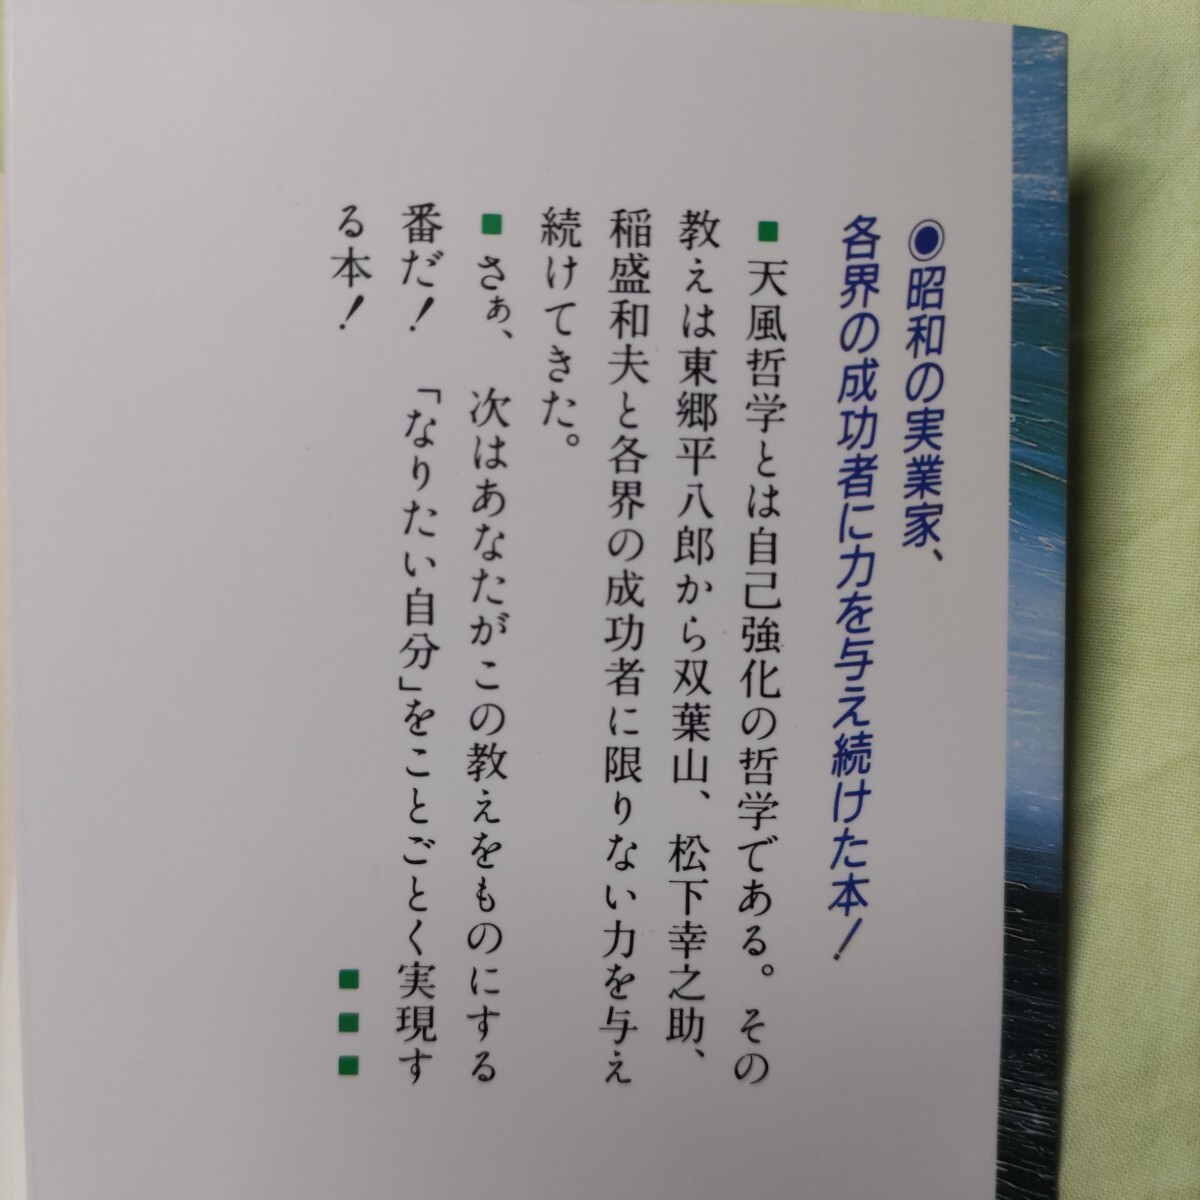 ◉昭和の実業家、
各界の成功者に力を与え続けた本！
■天風哲学とは自己強化の哲学である。その
教えは東郷平八郎から双葉山、松下幸之助、
稲盛和夫と各界の成功者に限りない力を与え
続けてきた。
■さぁ、次はあなたがこの教えをものにする
番だ！「なりたい自分」をことごとく実現す
る本！ ■■■